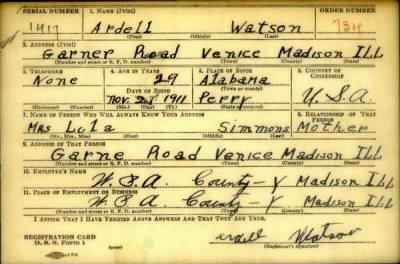 SERIAL NUMBER 1. NAME (Print) ORDER NUMBER
1417 Ardell Watson 734
(First) (Middle) (Last)
2. ADDRESS (Print)
Garner Road Venice Madison Ill
(Number and street or R. F. D. number) (Town) (County) (State)
3. TELEPHONE 4. AGE IN YEARS 5. PLACE OF BIRTH 6. COUNTRY OF CITIZENSHIP
None 29 Alabama
DATE OF BIRTH (Town or county)
Nov. 23 1911 Perry U.S.A.
(Exchange) (Number) (Mo.) (Day) (Yr.) (State or country)
7. NAME OF PERSON WHO WILL ALWAYS KNOW YOUR ADDRESS 8. RELATIONSHIP OF THAT PERSON
Mrs Lula Simmons Mother
(Mr., Mrs., Miss) (First) (Middle) (Last)
9. ADDRESS OF THAT PERSON
Garne Road Venice Madison Ill
(Number and street or R. F. D. number) (Town) (County) (State)
10. EMPLOYER'S NAME
W.P.A. County-V Madison Ill
11. PLACE OF EMPLOYMENT OR BUSINESS
W.P.A. County-V Madison Ill
(Number and street or R. F. D. number) (Town) (County) (State)
I AFFIRM THAT I HAVE VERIFIED ABOVE ANSWERS AND THAT THEY ARE TRUE.
REGISTRATION CARD
D. S. S. Form 1 ardell Watson
(Registrant's signature)